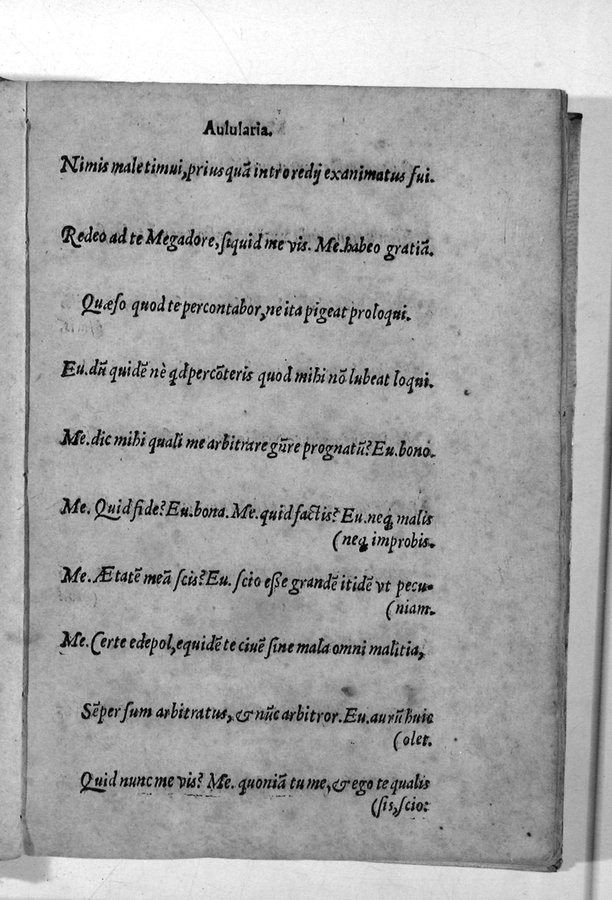 Aulularia.
Nimis male timui, prius quã intro redij exanimatus fui.
Redeo ad te Megadore, ſiquid me vis. Me. habeo gratiã.
Quæſo quod te percontabor, ne ita pigeat proloqui.
Eu. dũ quidẽ nè qd percõteris quod mihi nõ lubeat loqui.
Me. dic mihi quali me arbitrare gñre prognatũ? Eu. bono.
Me. Quid fide? Eu. bona. Me. quid factis? Eu. neq; malis
(neq; improbis.
Me. Ætatẽ meã ſcis? Eu. ſcio eſſe grandẽ itidẽ vt pecu-
(niam.
Me. Certe edepol, equidẽ te ciuẽ ſine mala omni malitia,
Sẽper ſum arbitratus, & nũc arbitror. Eu. aurũ huic
(olet.
Quid nunc me vis? Me. quoniã tu me, & ego te qualis
(ſis, ſcio: